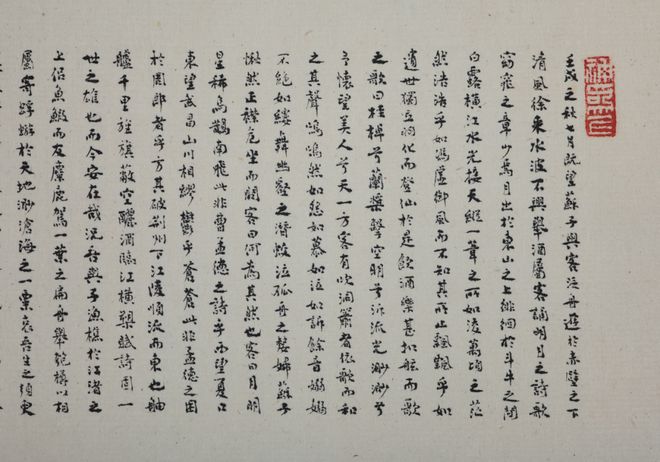 壬戌之秋七月既望蘇子與客泛舟遊於赤壁之下
清風徐來水波不興舉酒屬客誦明月之詩歌
窈窕之章少焉月出於東山之上徘徊於斗牛之間
白露橫江水光接天縱一葦之所如凌萬頃之茫
然浩浩乎如馮虛御風而不知其所止飄飄乎如
遺世獨立羽化而登仙於是飲酒樂甚扣舷而歌
之歌曰桂棹兮蘭槳擊空明兮泝流光渺渺兮
予懷望美人兮天一方客有吹洞簫者依歌而和
之其聲嗚嗚然如怨如慕如泣如訴餘音嫋嫋
不絕如縷舞幽壑之潛蛟泣孤舟之嫠婦蘇子
愀然正襟危坐而問客曰何為其然也客曰月明
星稀烏鵲南飛此非曹孟德之詩乎西望夏口
東望武昌山川相繆鬱乎蒼蒼此非孟德之困
於周郎者乎方其破荊州下江陵順流而東也舳
艫千里旌旗蔽空釃酒臨江橫槊賦詩固一
世之雄也而今安在哉況吾與子漁樵於江渚之
上侶魚鰕而友麋鹿駕一葉之扁舟舉匏樽以相
屬寄蜉蝣於天地渺滄海之一粟哀吾生之須臾